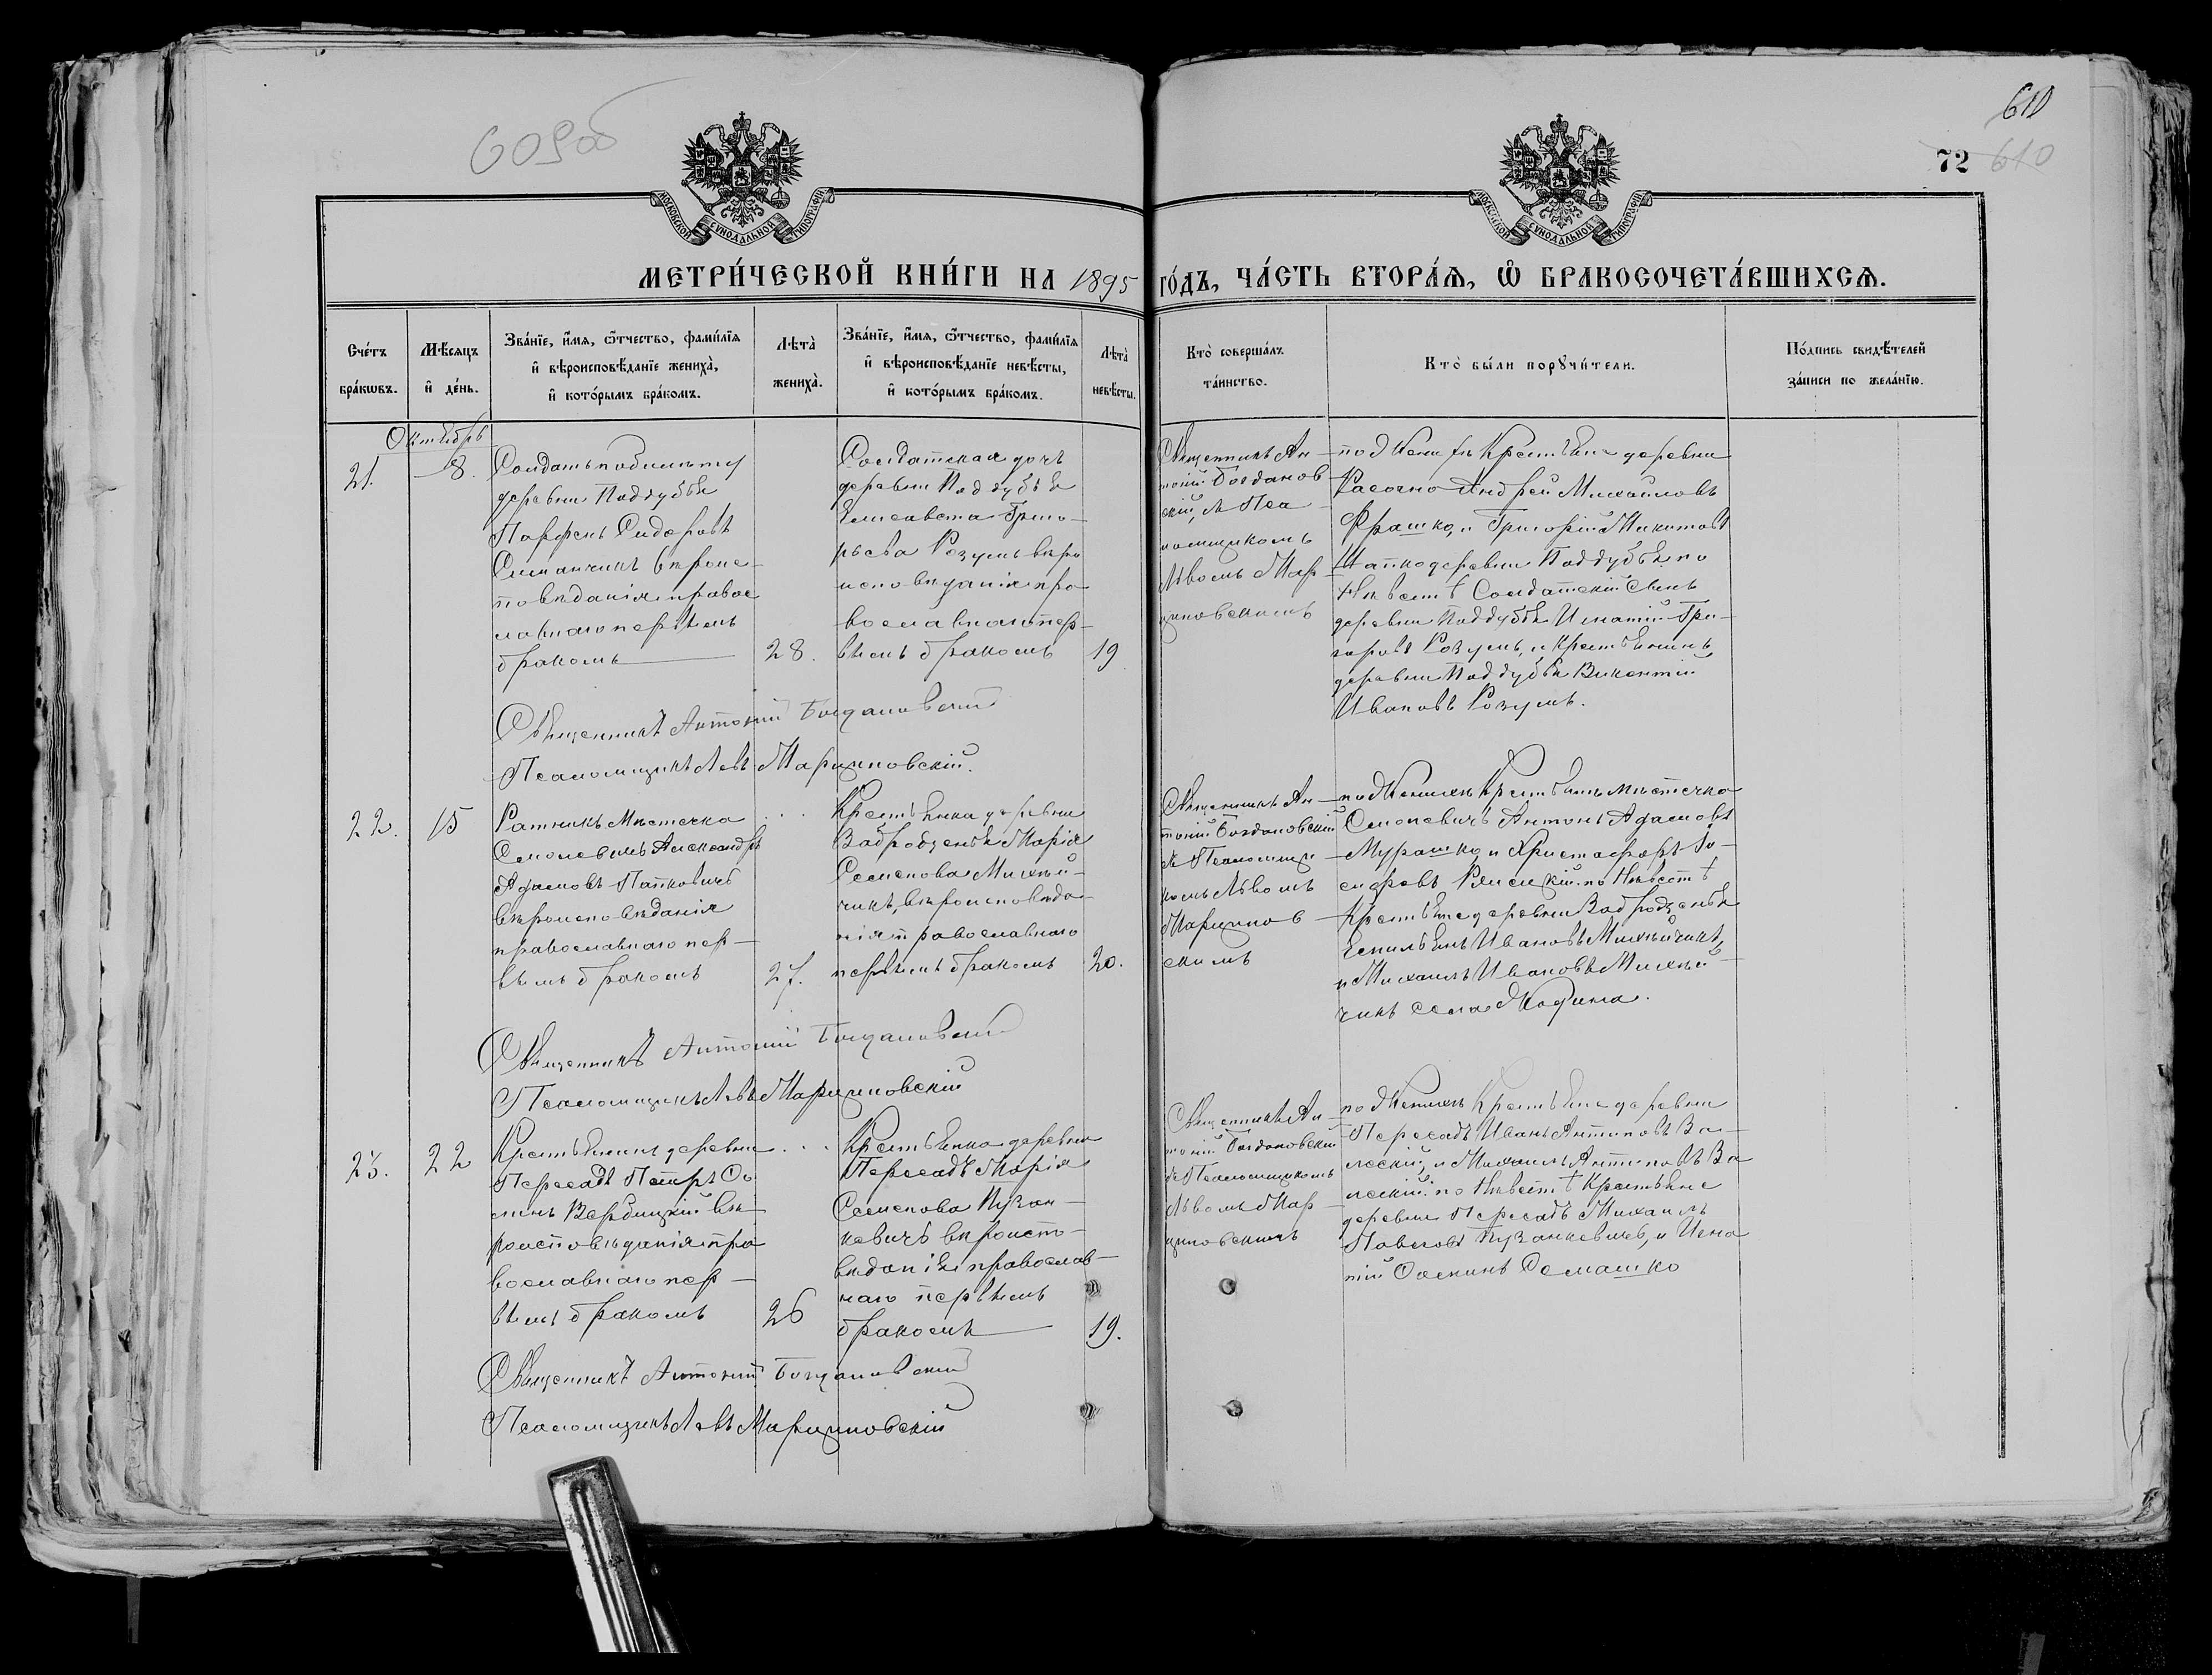 609об
610
72 610
МОСКОВСКОЙ СѴНОДАЛЬНОЙ ТИПОГРАФІИ
МОСКОВСКОЙ СѴНОДАЛЬНОЙ ТИПОГРАФІИ
МЕТРИ́ЧЕСКОЙ КНИ́ГИ НА 1895 ГО́ДЪ, ЧА́СТЬ ВТОРА́Ѧ, Ѡ҆ БРАКОСОЧЕТА́ВШИХСѦ.
Сче́тъ
бра́кѡвъ.
Мѣ́сѧцъ
и҆ де́нь.
Зва́нїе, и҆́мѧ, ѻ҆́тчество, фами́лїѧ
и҆ вѣроисповѣ́данїе жениха̀,
и҆ кото́рымъ бра́комъ.
Лѣта̀
жениха̀.
Зва́нїе, и҆́мѧ, ѻ҆́тчество, фами́лїѧ
и҆ вѣроисповѣ́данїе невѣ́сты,
и҆ кото́рымъ бра́комъ.
Лѣта̀
невѣ́сты.
Кто̀ соверша́лъ
та́инство.
Кто̀ бы́ли порꙋчи́тели.
По́дпись свидѣ́телей
за́писи по жела́нїю.
Октябрь
21.
8.
Солдатъ по билету
деревни Поддубья
Парфенъ Сидоровъ
Симанчикъ вѣроис-
повѣданія правос
лавнаго первымъ
бракомъ
28.
Солдатская дочь
деревни Поддубья
Елисавета Григо-
рьева Розумъ вѣро
исповѣданія пра
вославнаго пер-
вымъ бракомъ
19
Священникъ Ан-
тоній Богданов-
скій, съ Пса-
ломщикомъ
Львомъ Мар-
циновскимъ
по Женихѣ Крестьяне деревни
Андрей Михайловъ
и Григорій Никитовъ
деревни Поддубья по
Невѣстѣ Солдатскій сынъ
деревни Поддубья Игнатій Гри-
горовъ Розумъ, и Крестьянинъ
деревни Поддубья Викентій
Ивановъ Розумъ.
Священникъ Антоній Богдановскій
Псаломщикъ Левъ Марциновскій.
22.
15
Ратникъ Мѣстечка
Сполевичъ Александръ
Адамовъ Папковичъ
вѣроисповѣданія
православнаго пер-
вымъ бракомъ
27.
Крестьянка деревни
Забродзенья Марія
Семенова Михней-
чикъ, вѣроисповѣда-
нія православнаго
первымъ бракомъ
20.
Священникъ Ан-
тоній Богдановскій
съ Псаломщи
комъ Львомъ
Марцинов-
скимъ
по Женихѣ Крестьяне мѣстечка
Антонъ Адамовъ
Мурашко и Христофоръ Іо-
сифовъ по Невѣстѣ
Крестьяне деревни Забродзенья
Емильянъ Ивановъ Михнейчикъ,
и Михаилъ Ивановъ Михней-
чикъ села
Священникъ Антоній Богдановскій
Псаломщикъ Левъ Марциновскій
23.
22
Крестьянинъ деревни
Пересадъ Петръ Ос
иповъ Вербицкій вѣ-
роисповѣданія пра
вославнаго пер-
вымъ бракомъ
26
Крестьянка деревни
Пересадъ Марія
Семенова Пузан-
кевичъ вѣроиспо-
вѣданія православ-
наго первымъ
бракомъ
19.
Священникъ Ан-
тоній Богдановскій
съ Псаломщикомъ
Львомъ Мар-
циновскимъ
по Женихѣ Крестьяне деревни
Пересадъ Иванъ Антиповъ За-
лескій, и Михаилъ Антиповъ За
лескій: по Невѣстѣ Крестьяне
деревни Пересадъ Михаилъ
Павловъ Пузанкевичъ, и Игна
тій Осипинъ Семашко
Священникъ Антоній Богдановскій
Псаломщикъ Левъ Марциновскій